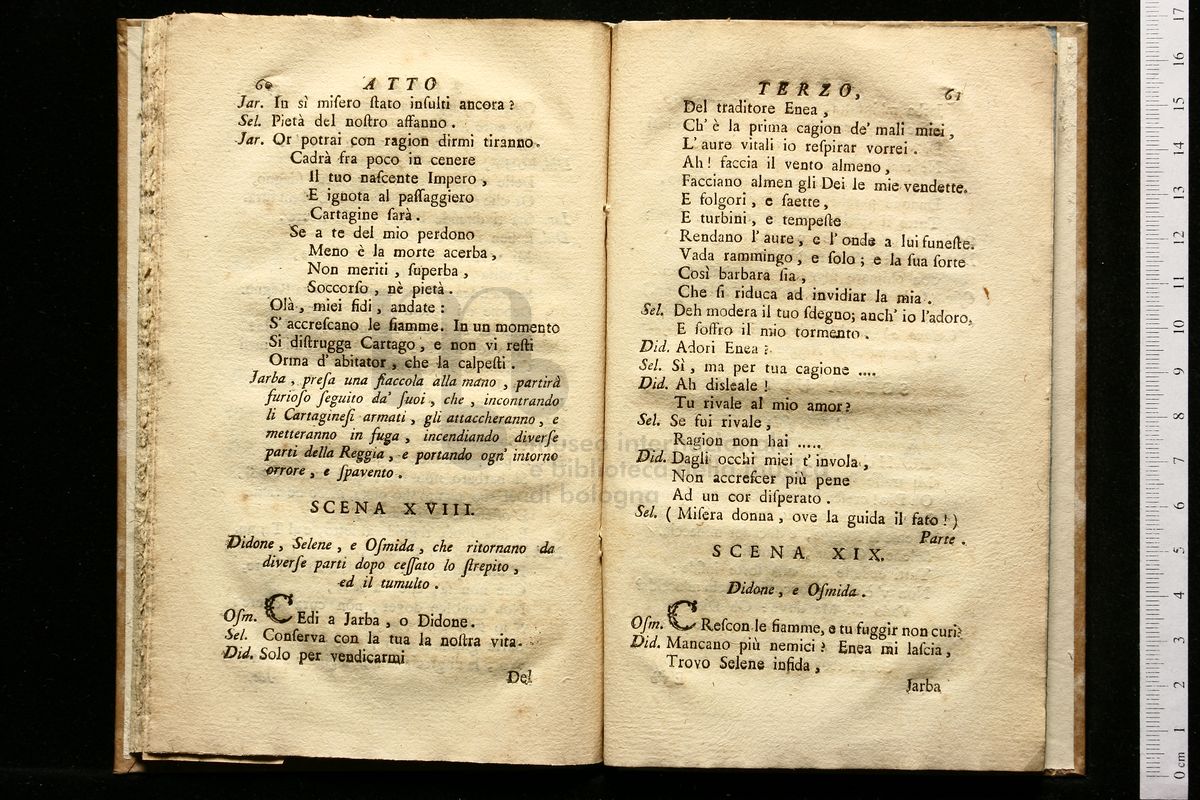 60 ATTO
Jar. In sì miſero ſtato inſulti ancora?
Sel. Pietà del noſtro affanno.
Jar. Or potrai con ragion dirmi tiranno.
Cadrà fra poco in cenere
Il tuo naſcente Impero,
E ignota al paſſaggiero
Cartagine ſarà.
Se a te del mio perdono
Meno è la morte acerba,
Non meriti, ſuperba,
Soccorſo, nè pietà.
Olà, miei fidi, andate:
S' accreſcano le fiamme. In un momento
Si diſtrugga Cartago, e non vi reſti
Orma d' abitator, che la calpeſti.
Jarba, preſa una fiaccola alla mano, partirà
furioſo ſeguito da' ſuoi, che, incontrando
li Cartagineſi armati, gli attaccheranno, e
metteranno in fuga, incendiando diverſe
parti della Reggia, e portando ogn' intorno
orrore, e ſpavento.
SCENA XVIII.
Didone, Selene, e Oſmida, che ritornano da
diverſe parti dopo ceſſato lo ſtrepito,
ed il tumulto.
Oſm. CEdi a Jarba, o Didone.
Sel. Conſerva con la tua la noſtra vita.
Did. Solo per vendicarmi
Del
TERZO, 61
Del traditore Enea,
Ch' è la prima cagion de' mali miei,
L' aure vitali io reſpirar vorrei.
Ah! faccia il vento almeno,
Facciano almen gli Dei le mie vendette.
E folgori, e ſaette,
E turbini, e tempeſte
Rendano l' aure, e l' onde a lui funeſte.
Vada rammingo, e ſolo; e la ſua ſorte
Così barbara ſia,
Che ſi riduca ad invidiar la mia.
Sel. Deh modera il tuo ſdegno; anch' io l'adoro,
E ſoffro il mio tormento.
Did. Adori Enea?
Sel. Sì, ma per tua cagione ....
Did. Ah disleale!
Tu rivale al mio amor?
Sel. Se fui rivale,
Ragion non hai .....
Did. Dagli occhi miei t' invola,
Non accreſcer più pene
Ad un cor diſperato.
Sel. (Miſera donna, ove la guida il fato!)
Parte.
SCENA XIX.
Didone, e Oſmida.
Oſm. CReſcon le fiamme, e tu fuggir non curi?
Did. Mancano più nemici? Enea mi laſcia,
Trovo Selene infida,
Jarba
museo internazionale
e biblioteca della musica
di bologna
0 cm 1 2 3 4 5 6 7 8 9 10 11 12 13 14 15 16 17